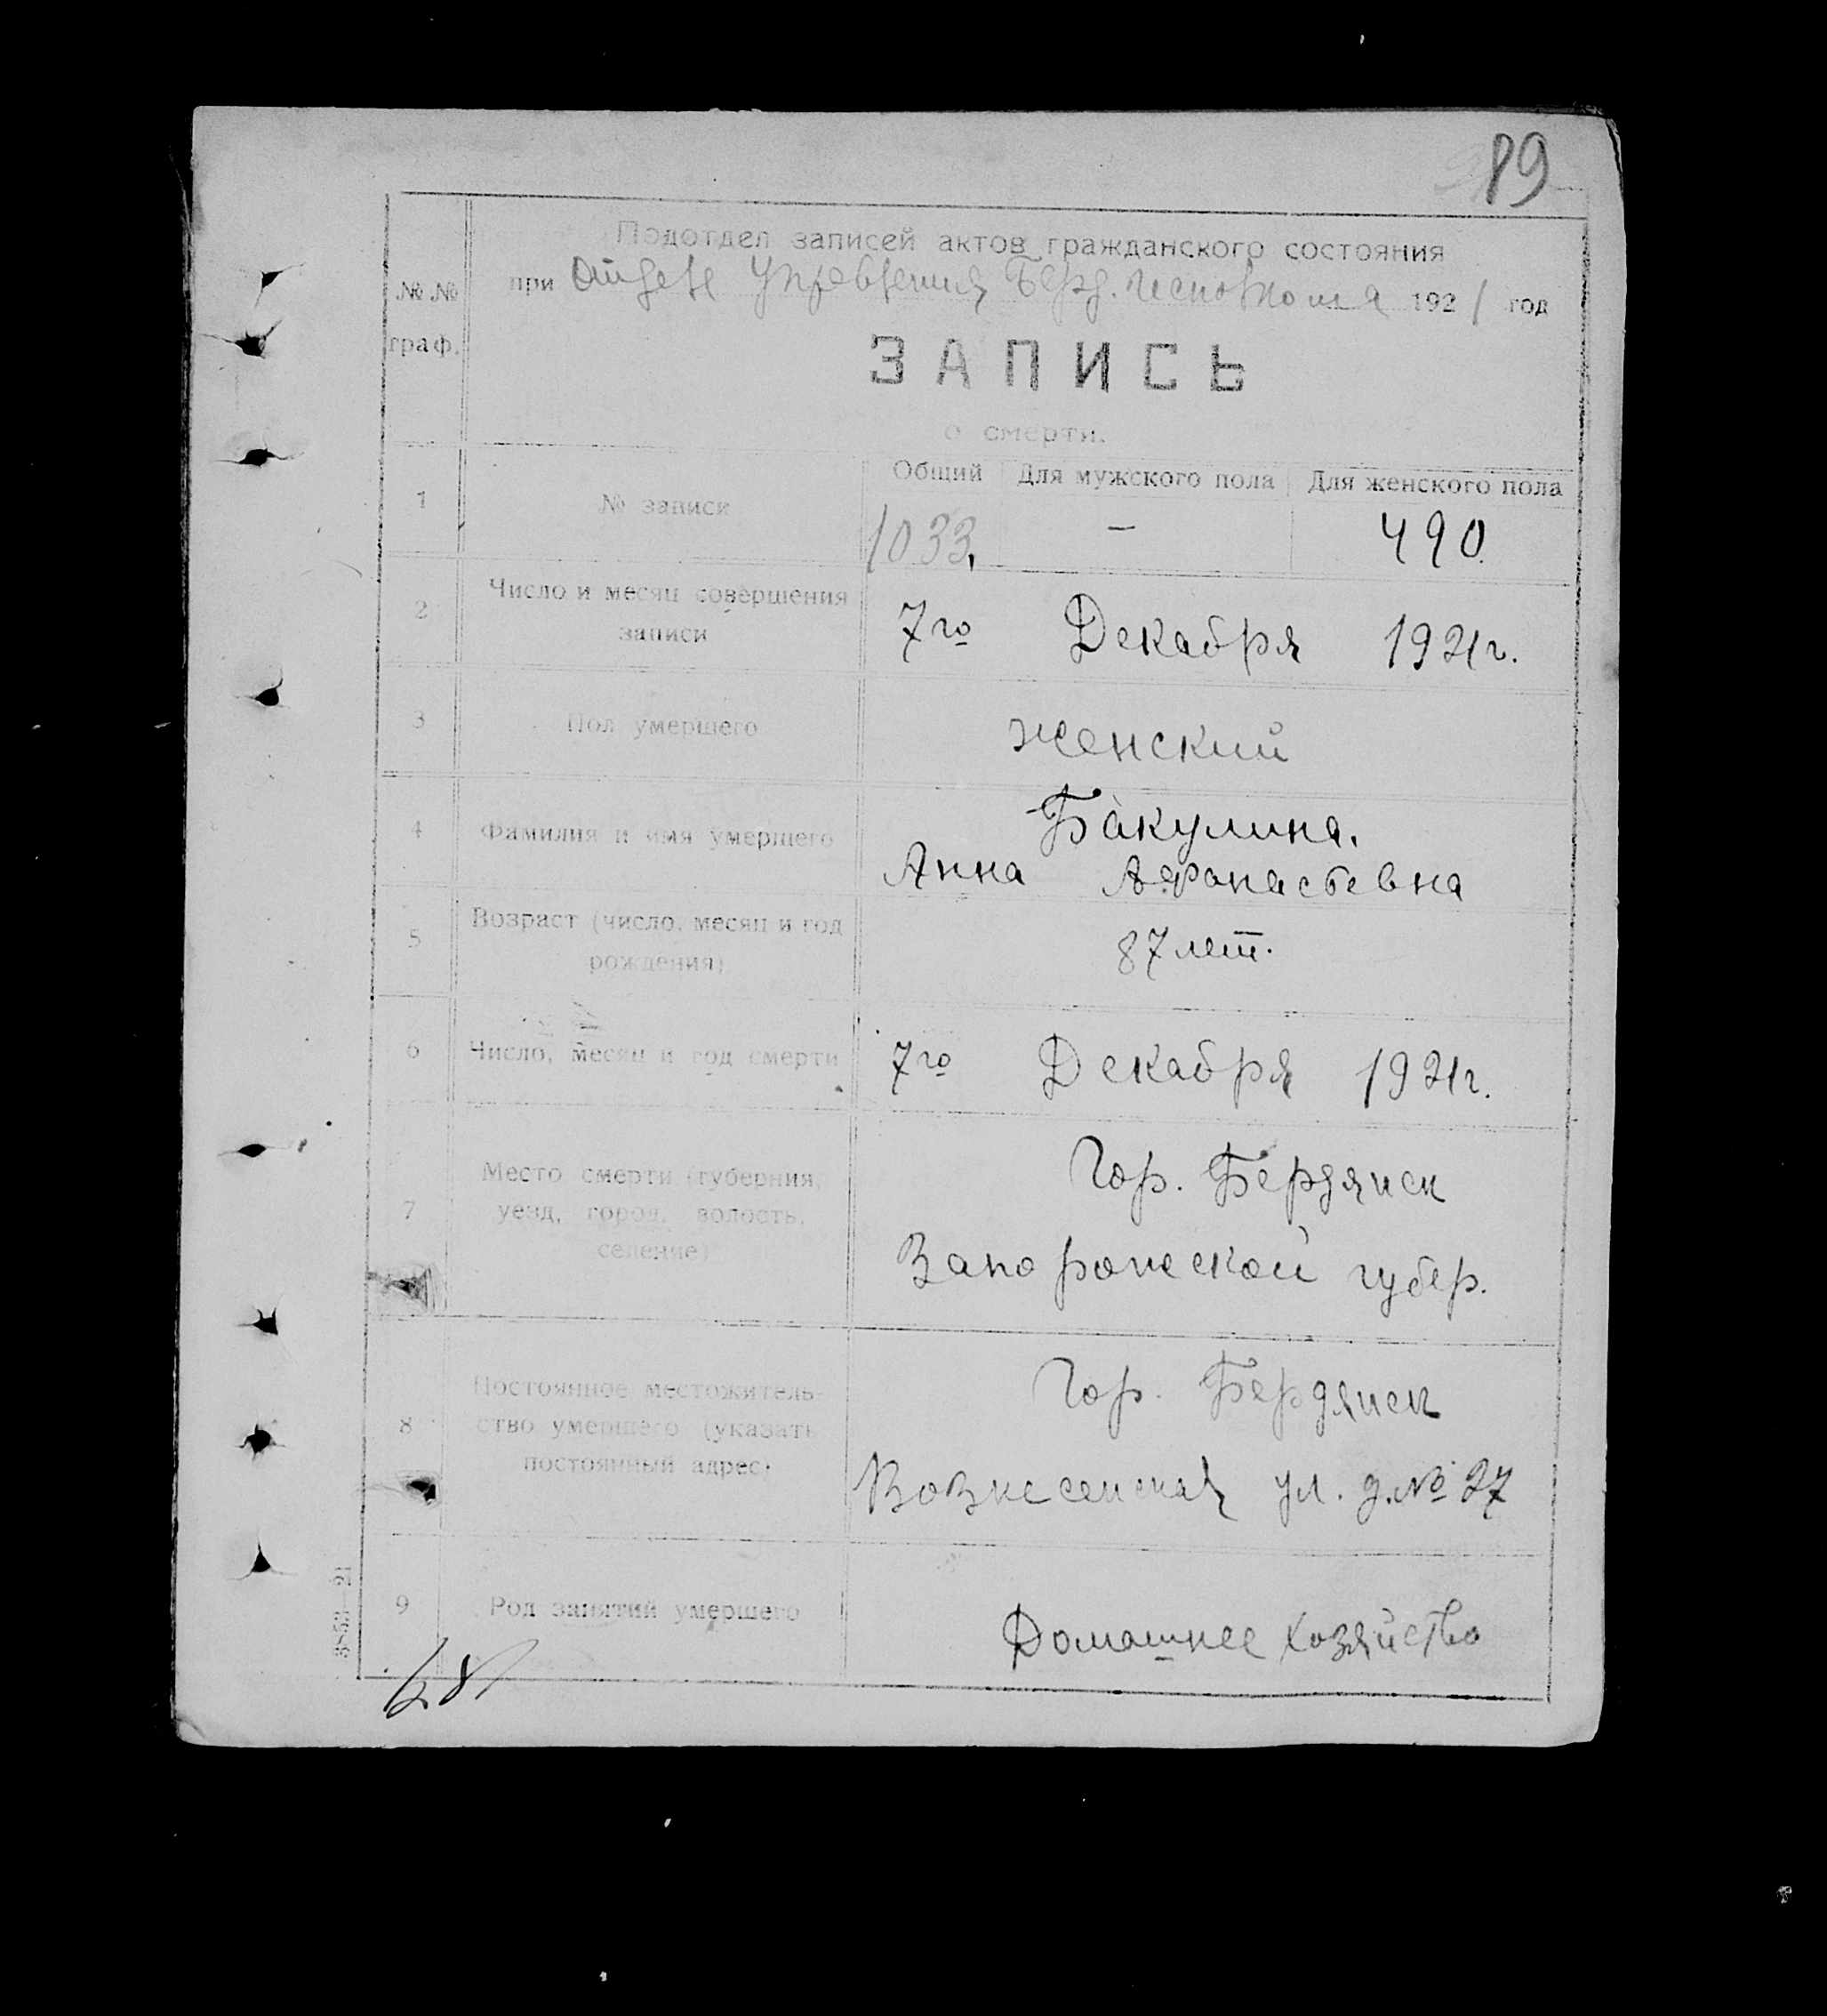 89
Подотдел записей актов гражданского состояния
при Отделе Управления Берд. Исполкома 1921 год
№№ граф.
ЗАПИСЬ
о смерти.
Общий Для мужского пола Для женского пола
1 № записи 1033. — 490.
2 Число и месяц совершения
записи
7го Декабря 1921г.
3 Пол умершего женский
4 Фамилия и имя умершего
Бакулина.
Анна Афонасьевна
5 Возраст (число, месяц и год
рождения)
87 лет.
6 Число, месяц и год смерти 7го Декабря 1921г.
7 Место смерти (губерния,
уезд, город, волость,
селение)
Гор. Бердянск
Запорожской губер.
8 Постоянное местожитель-
ство умершего (указать
постоянный адрес)
Гор. Бердянск
Вознесенская ул. д. № 27
9 Род занятий умершего Домашнее хозяйство